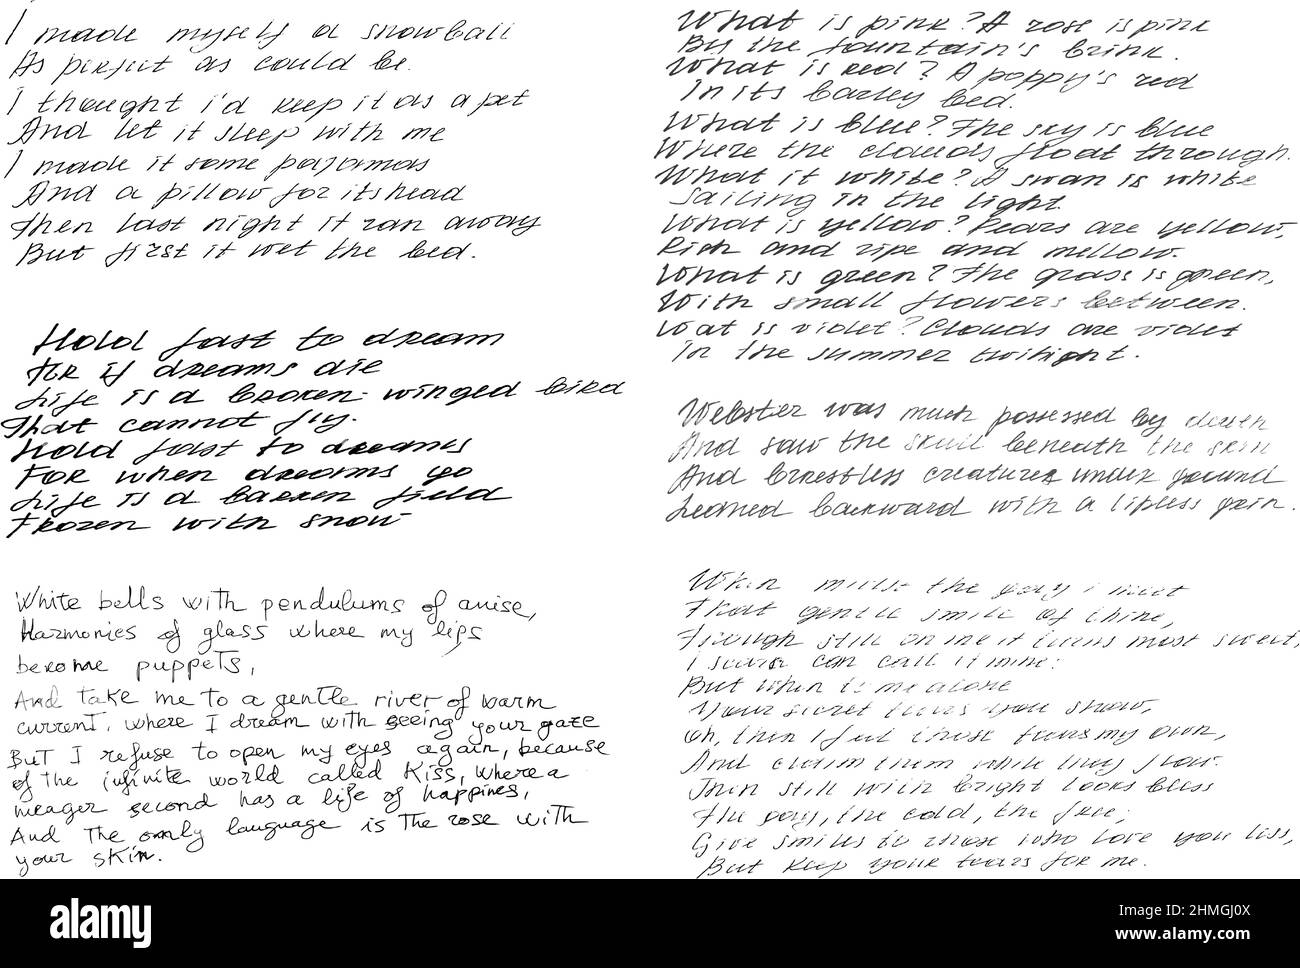 I made myself a snowball
As perfect as could be.
I thought i'd keep it as a pet
And let it sleep with me
I made it some pajamas
And a pillow for its head
Then last night it ran away
But first it wet the bed.
Hold fast to dream
For if dreams die
Life is a broken-winged bird
That cannot fly.
Hold fast to dreams
For when dreams go
Life is a barren field
Frozen with snow
White bells with pendulums of anise,
Harmonies of glass where my lips
become puppets,
And take me to a gentle river of warm
current, where I dream with seeing your gaze
But I refuse to open my eyes again, because
of the infinite world called Kiss, where a
meager second has a life of happines,
And The only language is The rose with
your skin.
What is pink? A rose is pink
By the fountain's brink.
What is red? A poppy's red
In its barley bed.
What is blue? The sky is blue
Where the clouds float through.
What it white? A swan is white
Sailing in the light.
What is yellow? Pears are yellow,
Rich and ripe and mellow.
What is green? The grass is green,
With small flowers between.
Wat is violet? Clouds are violet
In the summer twilight.
Webster was much possessed by death
And saw the skull beneath the skin
And breastless creatures under ground
Leaned backward with a lipless grin.
When midst the gay i meet
That gentle smile of thine,
Though still on me it turns most sweet,
I scarce can call it mine:
But when to me alone
Your secret tears you show,
Oh, then I feel those tears my own,
And claim them while they flow.
Then still with bright looks bless
The gay, the cold, the free;
Give smiles to those who love you less,
But keep your tears for me.
alamy
Image ID: 2HMGJ0X
www.alamy.com